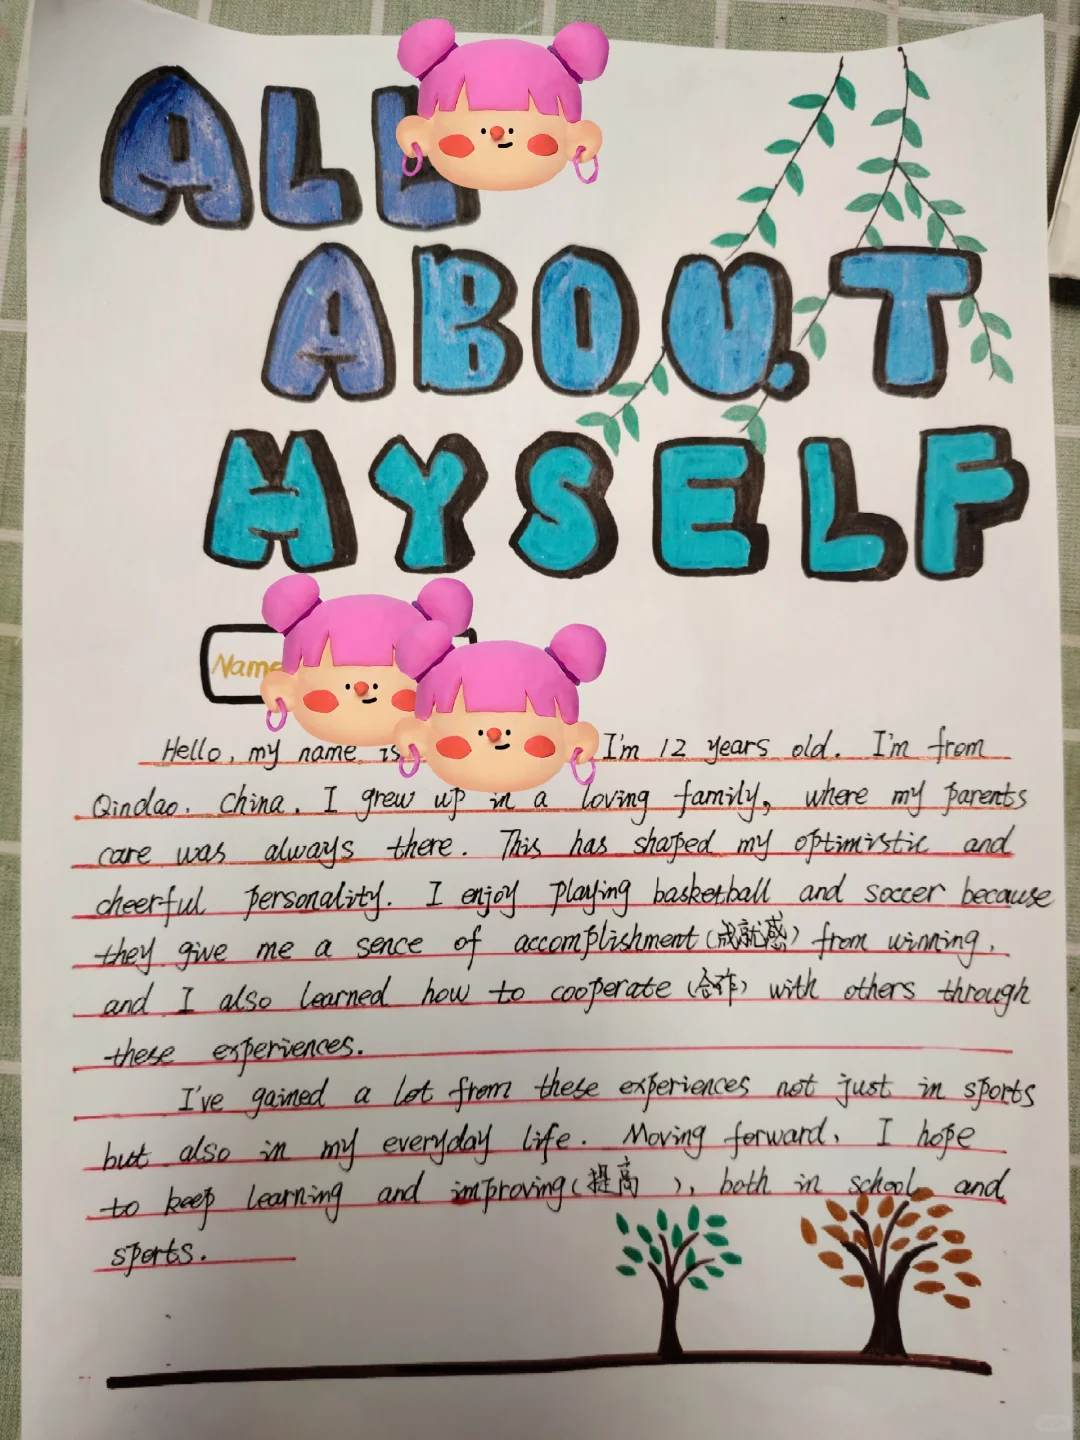 ALL
ABOUT
MYSELF
Name
Hello, my name is I'm 12 years old. I'm from
Qindao. China. I grew up in a loving family, where my parents
care was always there. This has shaped my optimistic and
cheerful personality. I enjoy playing basketball and soccer because
they give me a sence of accomplishment (成就感) from winning,
and I also learned how to cooperate (合作) with others through
these experiences.
I've gained a lot from these experiences not just in sports
but also in my everyday life. Moving forward, I hope
to keep learning and improving (提高), both in school and
sports.